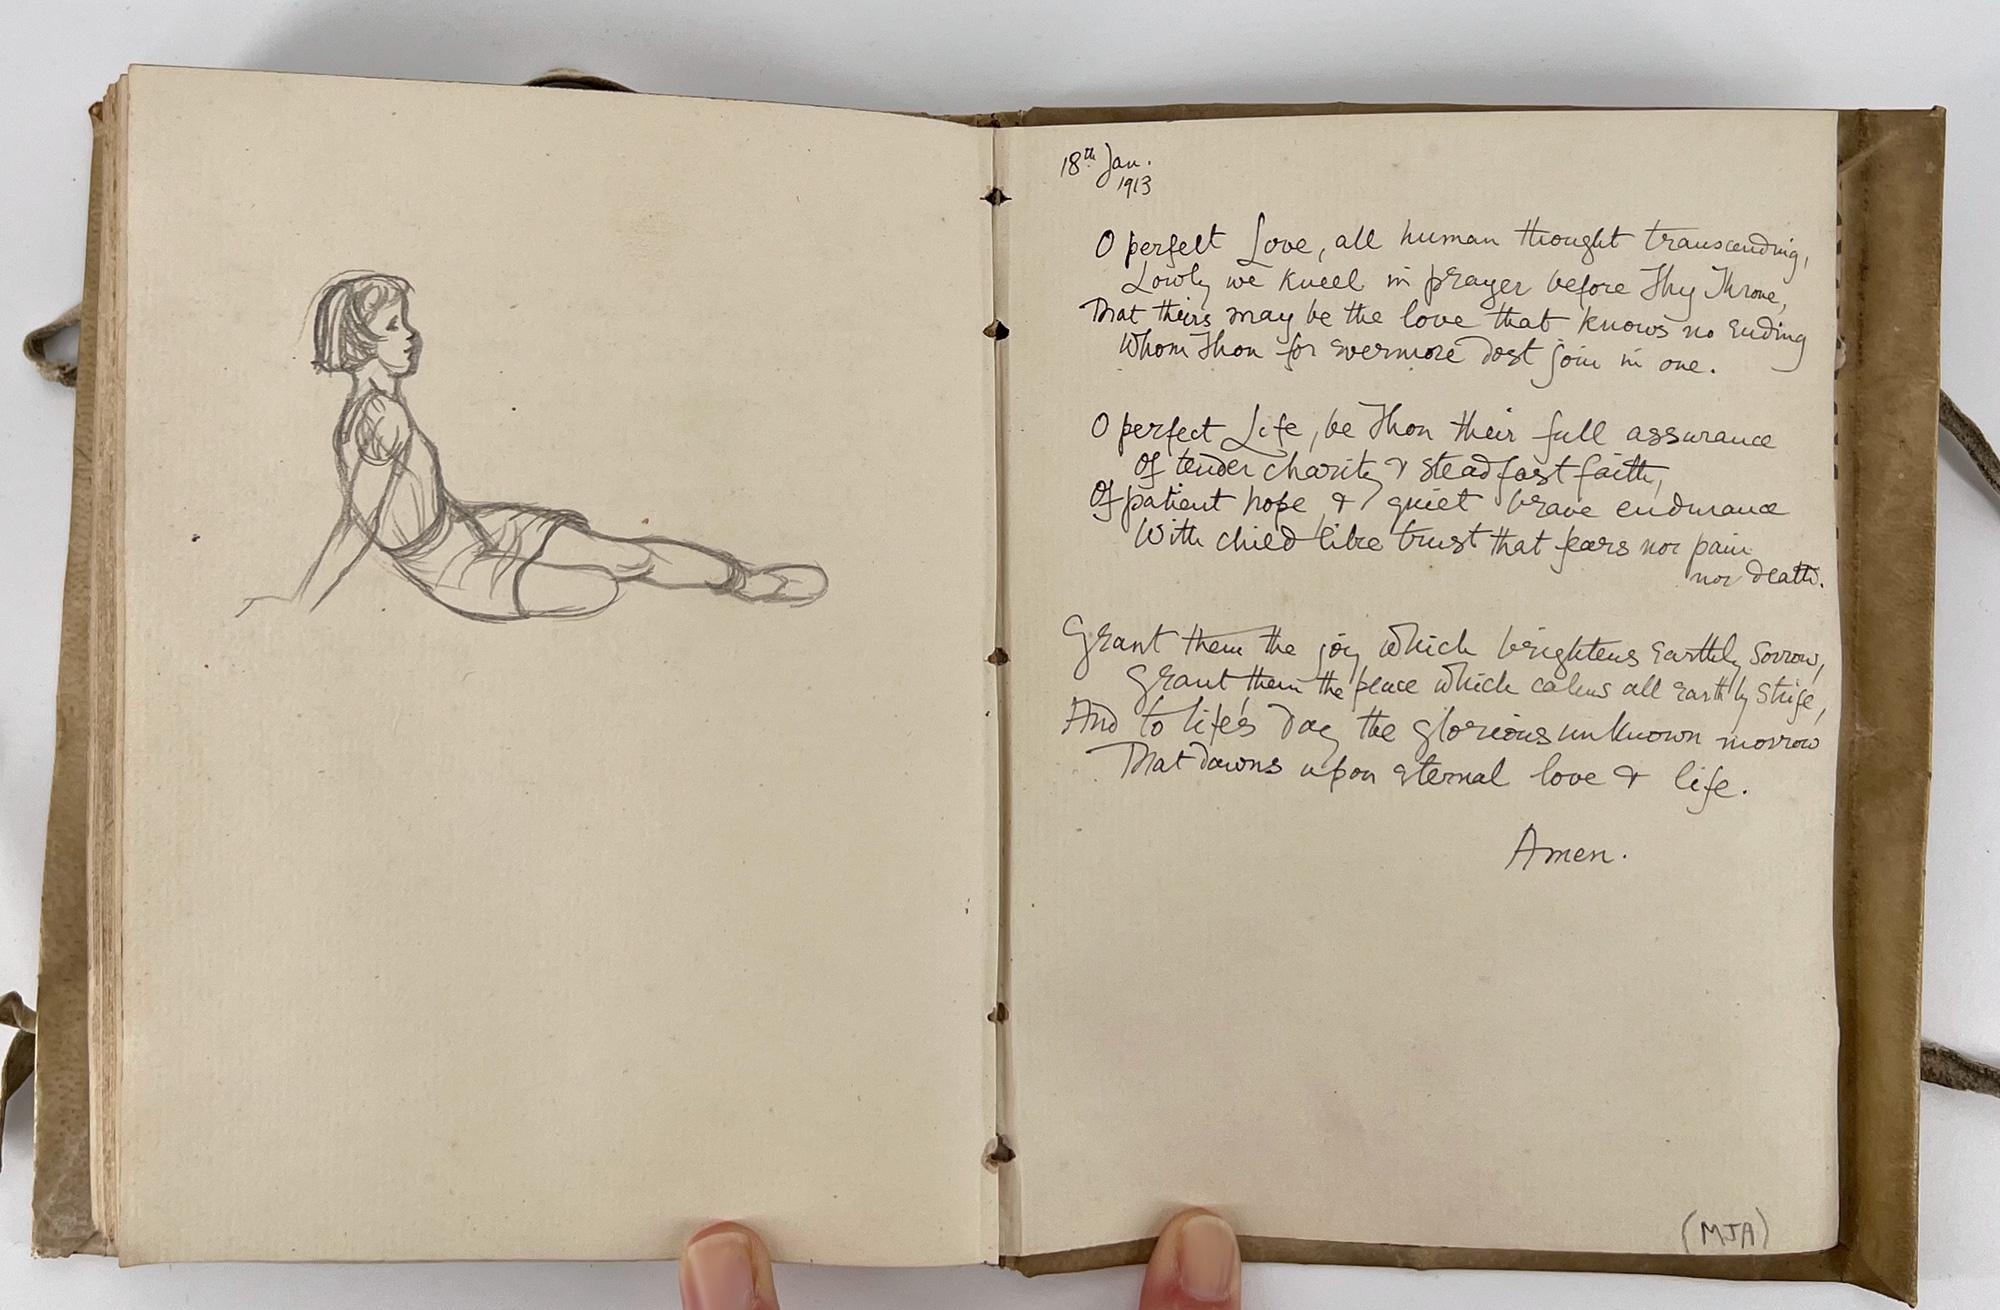 18th Jan.
1913
O perfect Love, all human thought transcending,
Lowly we kneel in prayer before Thy Throne,
That theirs may be the love that knows no ending
Whom Thou for evermore dost join in one.
O perfect Life, be Thou their full assurance
Of tender charity & steadfast faith,
Of patient hope, & quiet brave endurance
With child like trust that fears nor pain
nor death.
Grant them the joy which brightens earthly sorrow,
Grant them the peace which calms all earthly strife,
And to life's day the glorious unknown morrow
That dawns upon eternal love & life.
Amen.
(MJA)